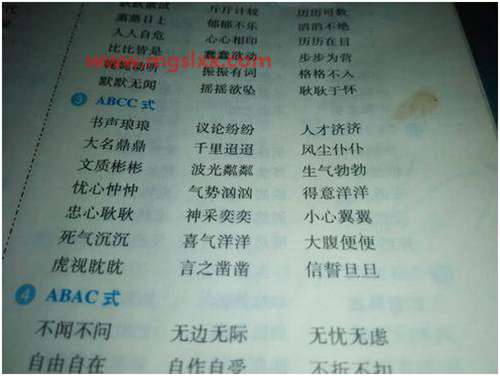 斤斤计较 历历可数
蒸蒸日上 郁郁不乐 滔滔不绝
人人自危 心心相印 历历在目
比比皆是 蠢蠢欲动 步步为营
www.mgslxx.com
娓娓动听 振振有词 格格不入
默默无闻 摇摇欲坠 耿耿于怀
3 ABCC 式
书声琅琅 议论纷纷 人才济济
大名鼎鼎 千里迢迢 风尘仆仆
文质彬彬 波光粼粼 生气勃勃
忧心忡忡 气势汹汹 得意洋洋
忠心耿耿 神采奕奕 小心翼翼
死气沉沉 喜气洋洋 大腹便便
虎视眈眈 言之凿凿 信誓旦旦
4 ABAC 式
不闻不问 无边无际 无忧无虑
自由自在 自作自受 不折不扣